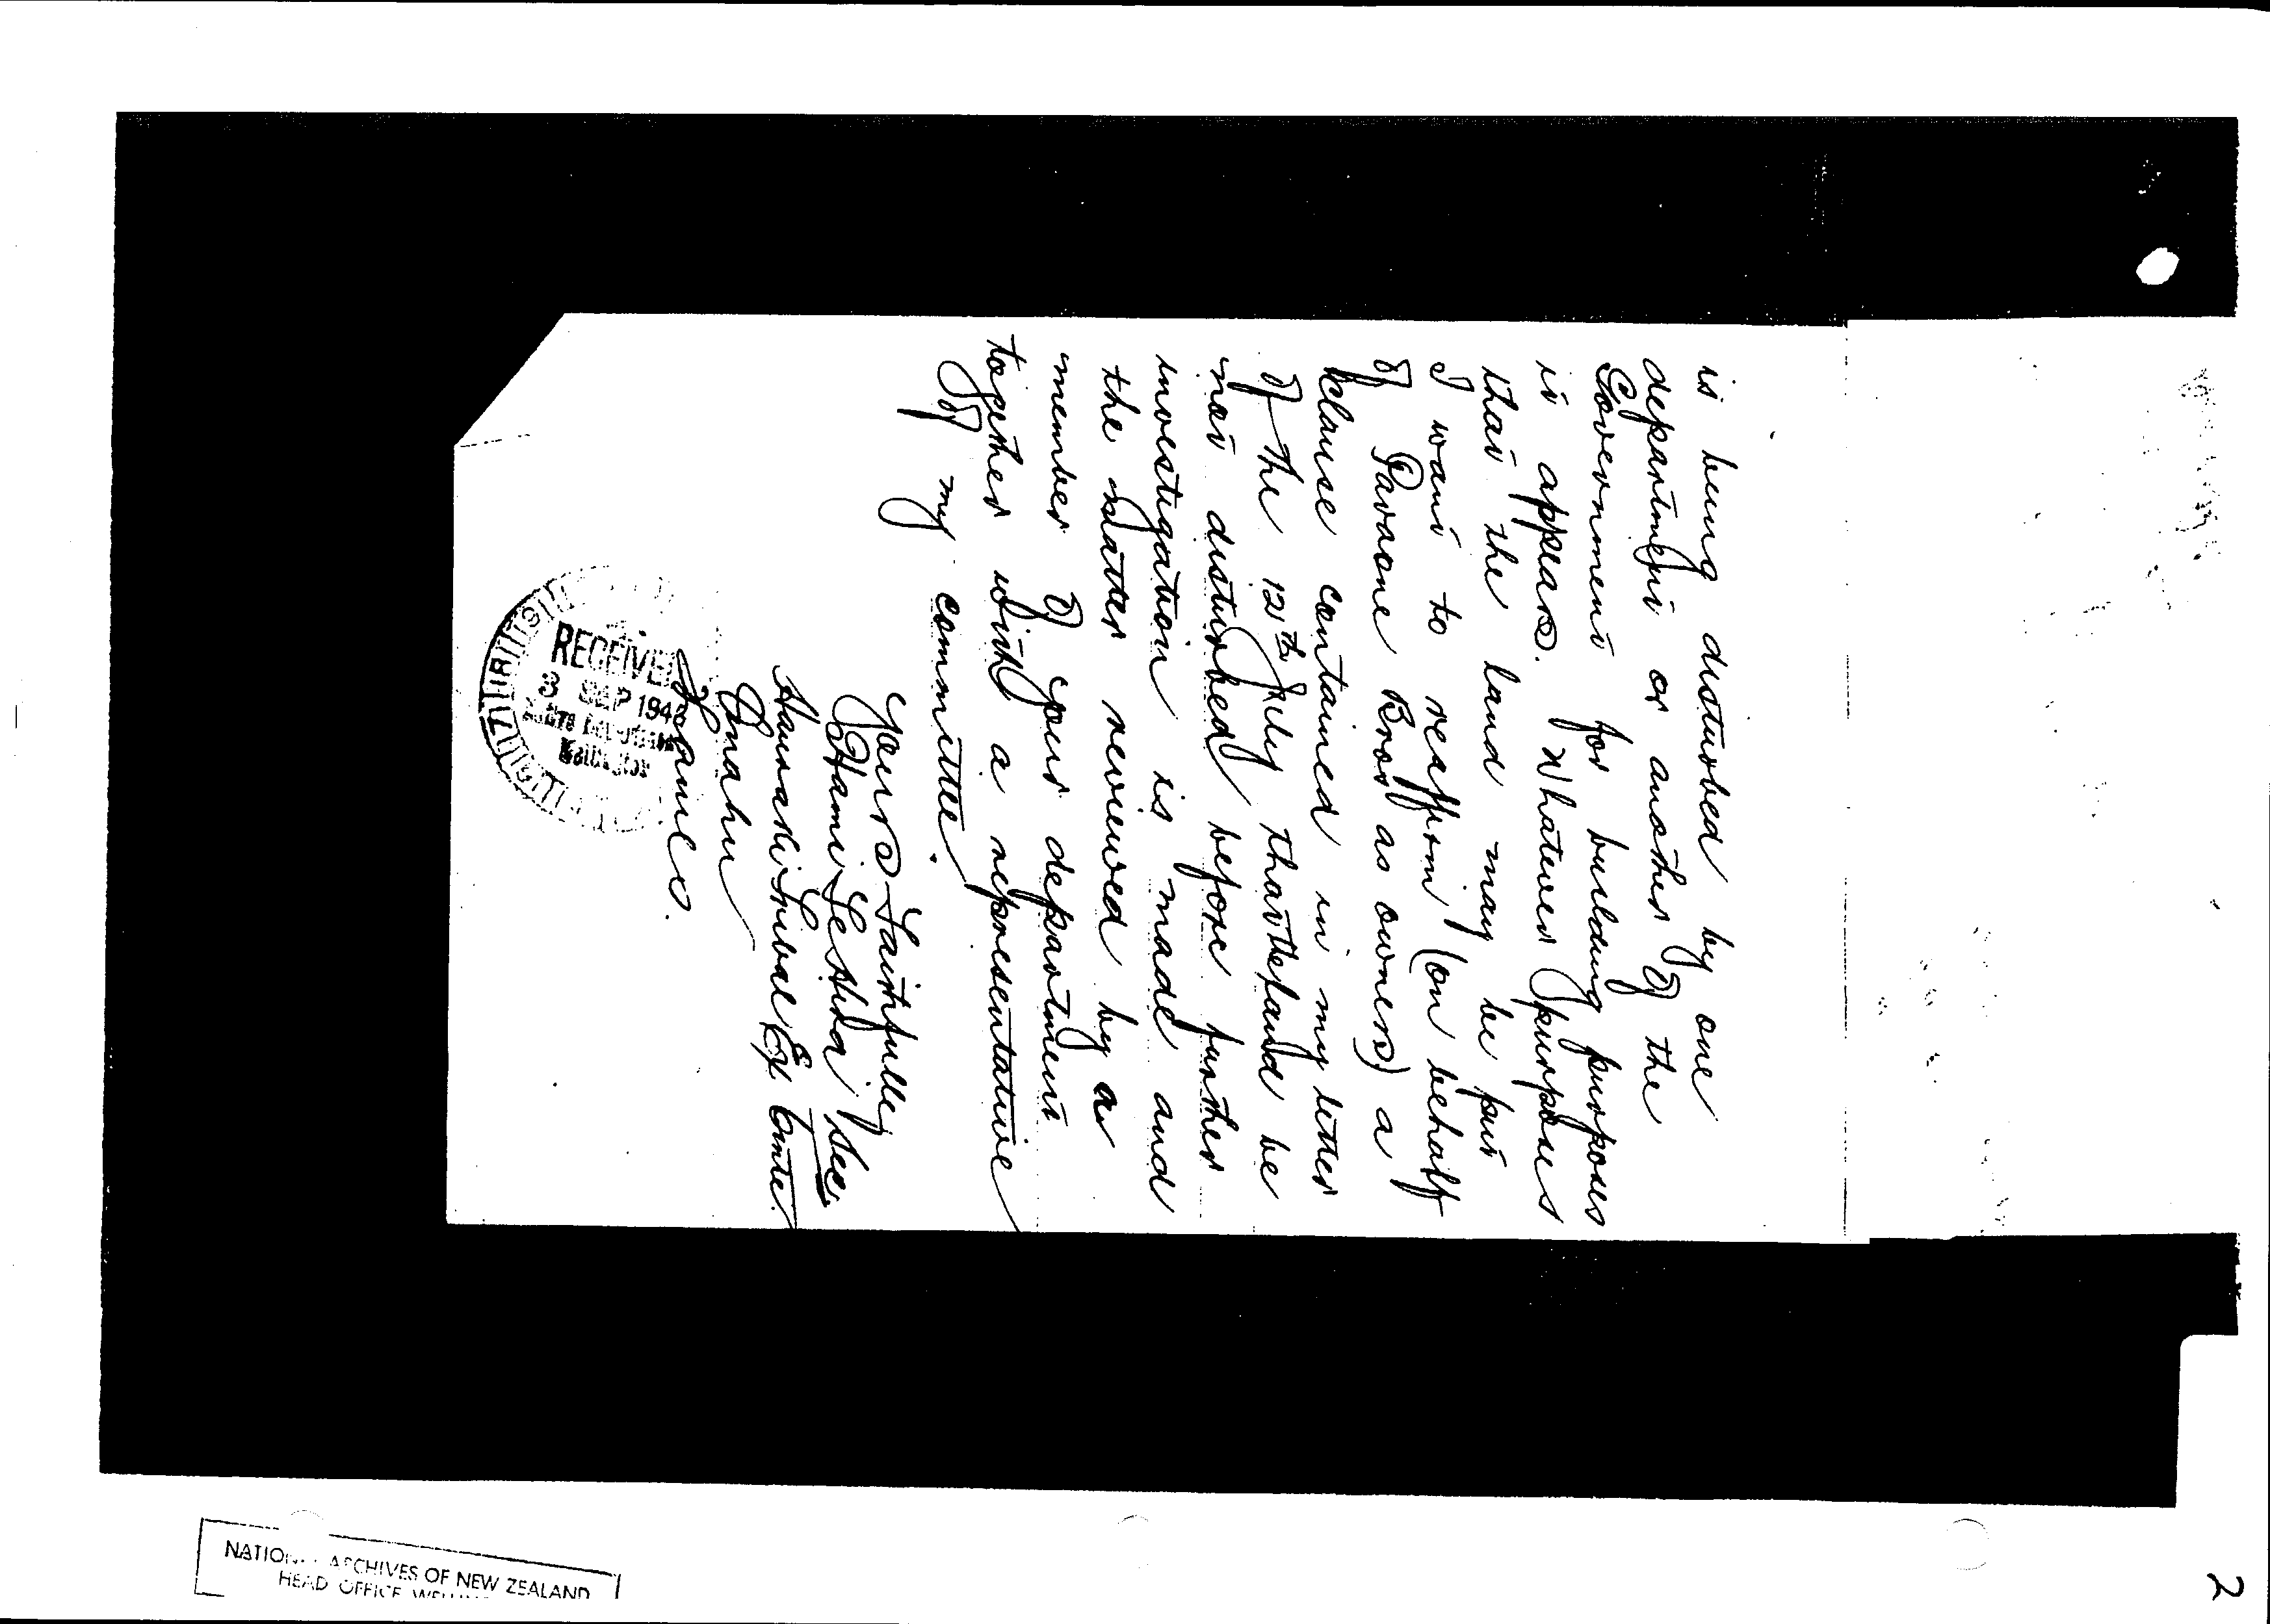 is being disturbed by one
department or another of the
Government for building purposes
it appears. Whatever purposes
that the land may be put
I want to reaffirm (on behalf
of Pavaone Bros as owners) a
clause contained in my letter
of the 12th July that the land be
not disturbed before further
investigation is made and
the matter reviewed by a
member of your department
together with a representative
of my committee.
Yours Faithfully
Hami Te Hira Sec
Hauraki Tribal Ex Comte.
Thames.
RECEIVED
3 SEP 1948
NATIONAL ARCHIVES OF NEW ZEALAND
HEAD OFFICE
2